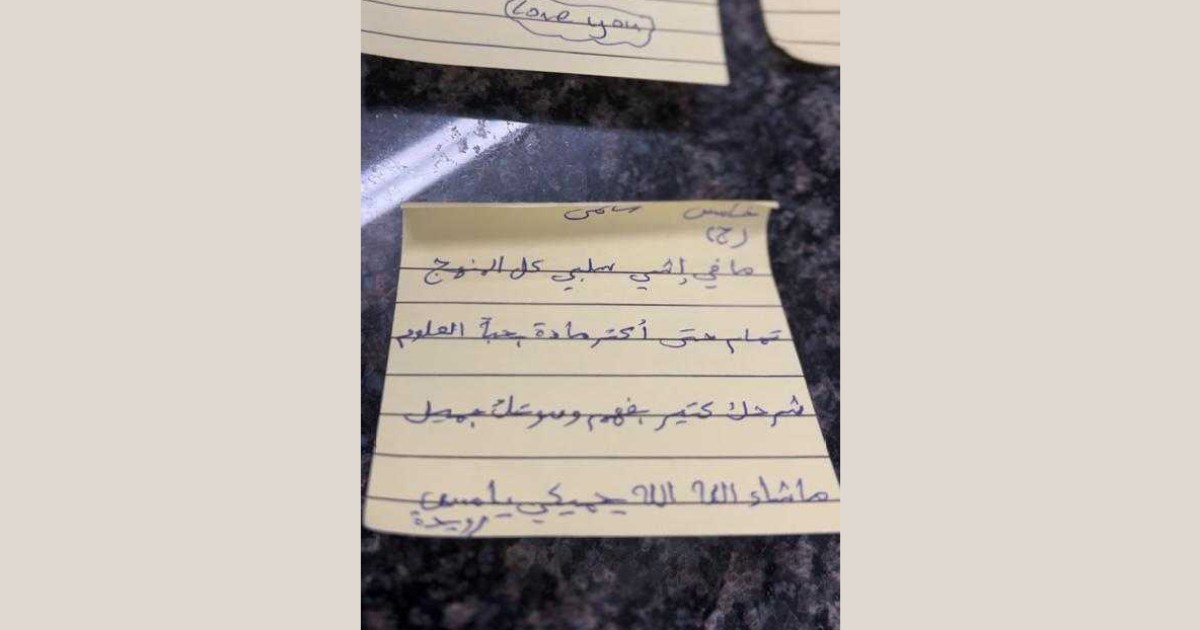 Love you
خامس
(ج)
ما في إشي سلبي كل المنهج
تمام حتى أكتر مادة بحبّا العلوم
شرحك كتير بفهم وصوتك جميل
ما شاء الله الله يحميكي يا مس
رويدة